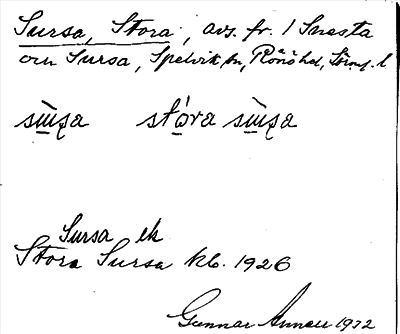 Sursa, Stora, avs. fr. 1 Snesta
och Sursa, Spelvik sn, Rönö hd, Sörml. l
sɯ̀ṣa stóra sɯ̀ṣa
Sursa ek
Stora Sursa kb. 1926
Gunnar 1932